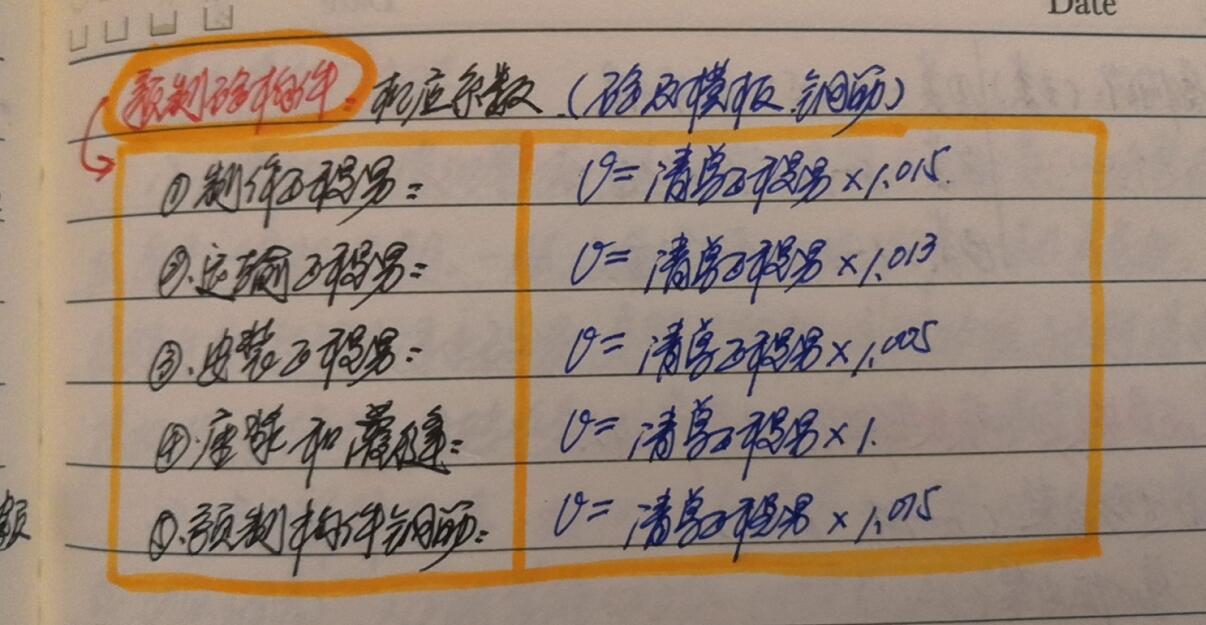 Date
预制砼构件：相应系数（砼及模板、钢筋）
①制作工程量：　V=清单工程量×1.015
②.运输工程量：　V=清单工程量×1.013
③.安装工程量：　V=清单工程量×1.005
④.座浆和灌缝：　V=清单工程量×1.
⑤.预制构件钢筋：　V=清单工程量×1.015
额